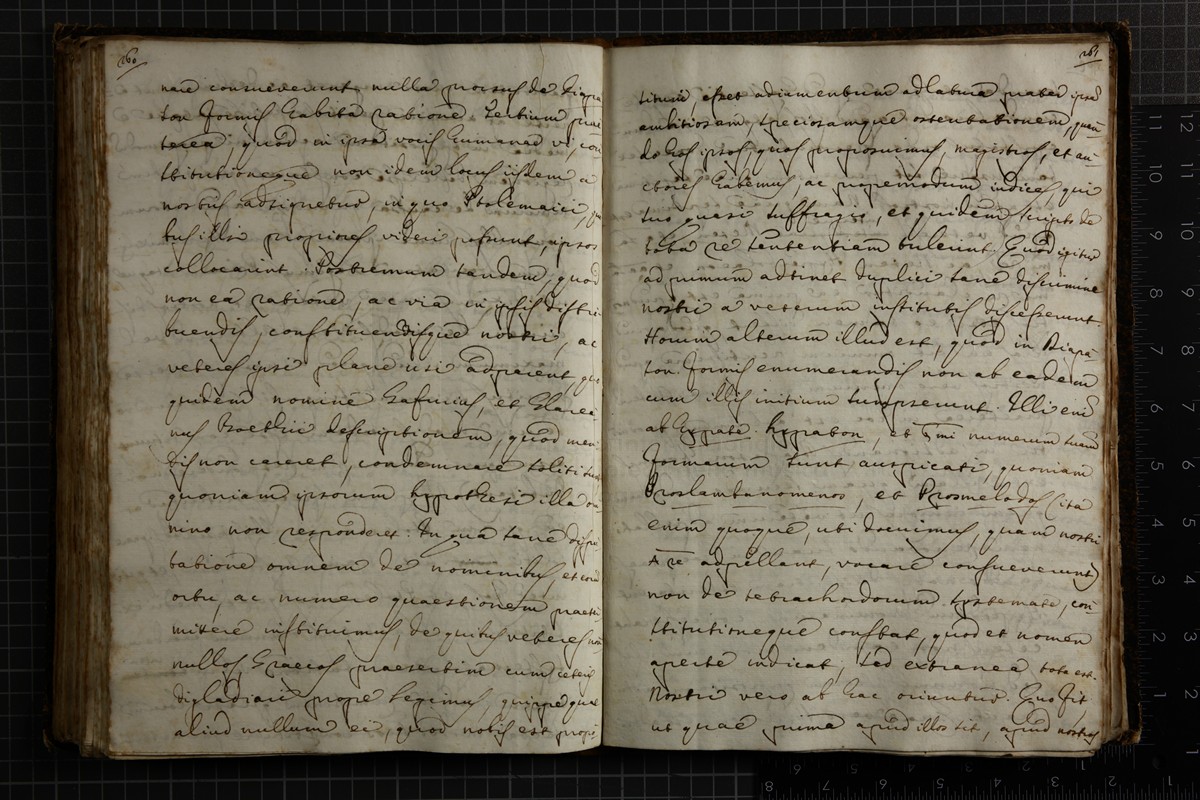 260
nare consueverunt nulla prorsus de Diapa
ton formis habita ratione. Tertium prae
terea quod in ipsa vocis humanae vi, con
stitutioneque non idem locus iisdem a
nostris adsignetur, in quo Ptolemaici,
bus illi propriores videri possunt, ipsos
collocarint. Postremum tandem, quod
non ea ratione, ac via in ipsis distri
buendis, constituendisque nostri, ac
veteres ipsi plane usi adparent, quo
quidem nomine Gafurius, et Glarea
nus Boethii descriptionem, quod men
dis non careret, condemnare soliti sunt
quoniam ipsorum hypothesi illa om
nino non responderet. In qua sane dispu
tatione omnem de nominibus, et
ortu, ac numero quaestionem praeter
mittere instituimus, de quibus veteres non
nullos Graecos praesertim cum ceteris
digladiari prope legimus, quippe quae
aliud nullum ei, quod nobis est propo
261
situm, esset adiumentum adlatura praeter ipsam
ambitiosam, speciosamque ostentationem, quan
do hos ipsos, quos proposuimus, magistros, et au
ctores habemus, ac propemodum indices, qui
suo quasi suffragio, et quidem scripto de
tota re sententiam tulerunt. Quod igitur
ad primum adtinet duplici sane discrimine
nostri a veterum institutis discesserunt.
Horum alterum illud est, quod in Diapa
ton formis enumerandis non ab eadem
cum illis initium sumpserunt. Illi enim
ab hypate hypaton, et ♮ mi numerum suarum
formarum sunt auspicati, quoniam
Proslambanomenos, et Prosmelodos (ita
enim quoque, ubi docuimus, quam nostri
A re adpellant, vocare consueverunt)
non de tetrachordorum systemate, con
stitutioneque constat, quod et nomen
aperte indicat, sed extranea tota est.
Nostri vero ab hac oriuntur. Quo fit
ut quae prima apud illos sit, apud nostros